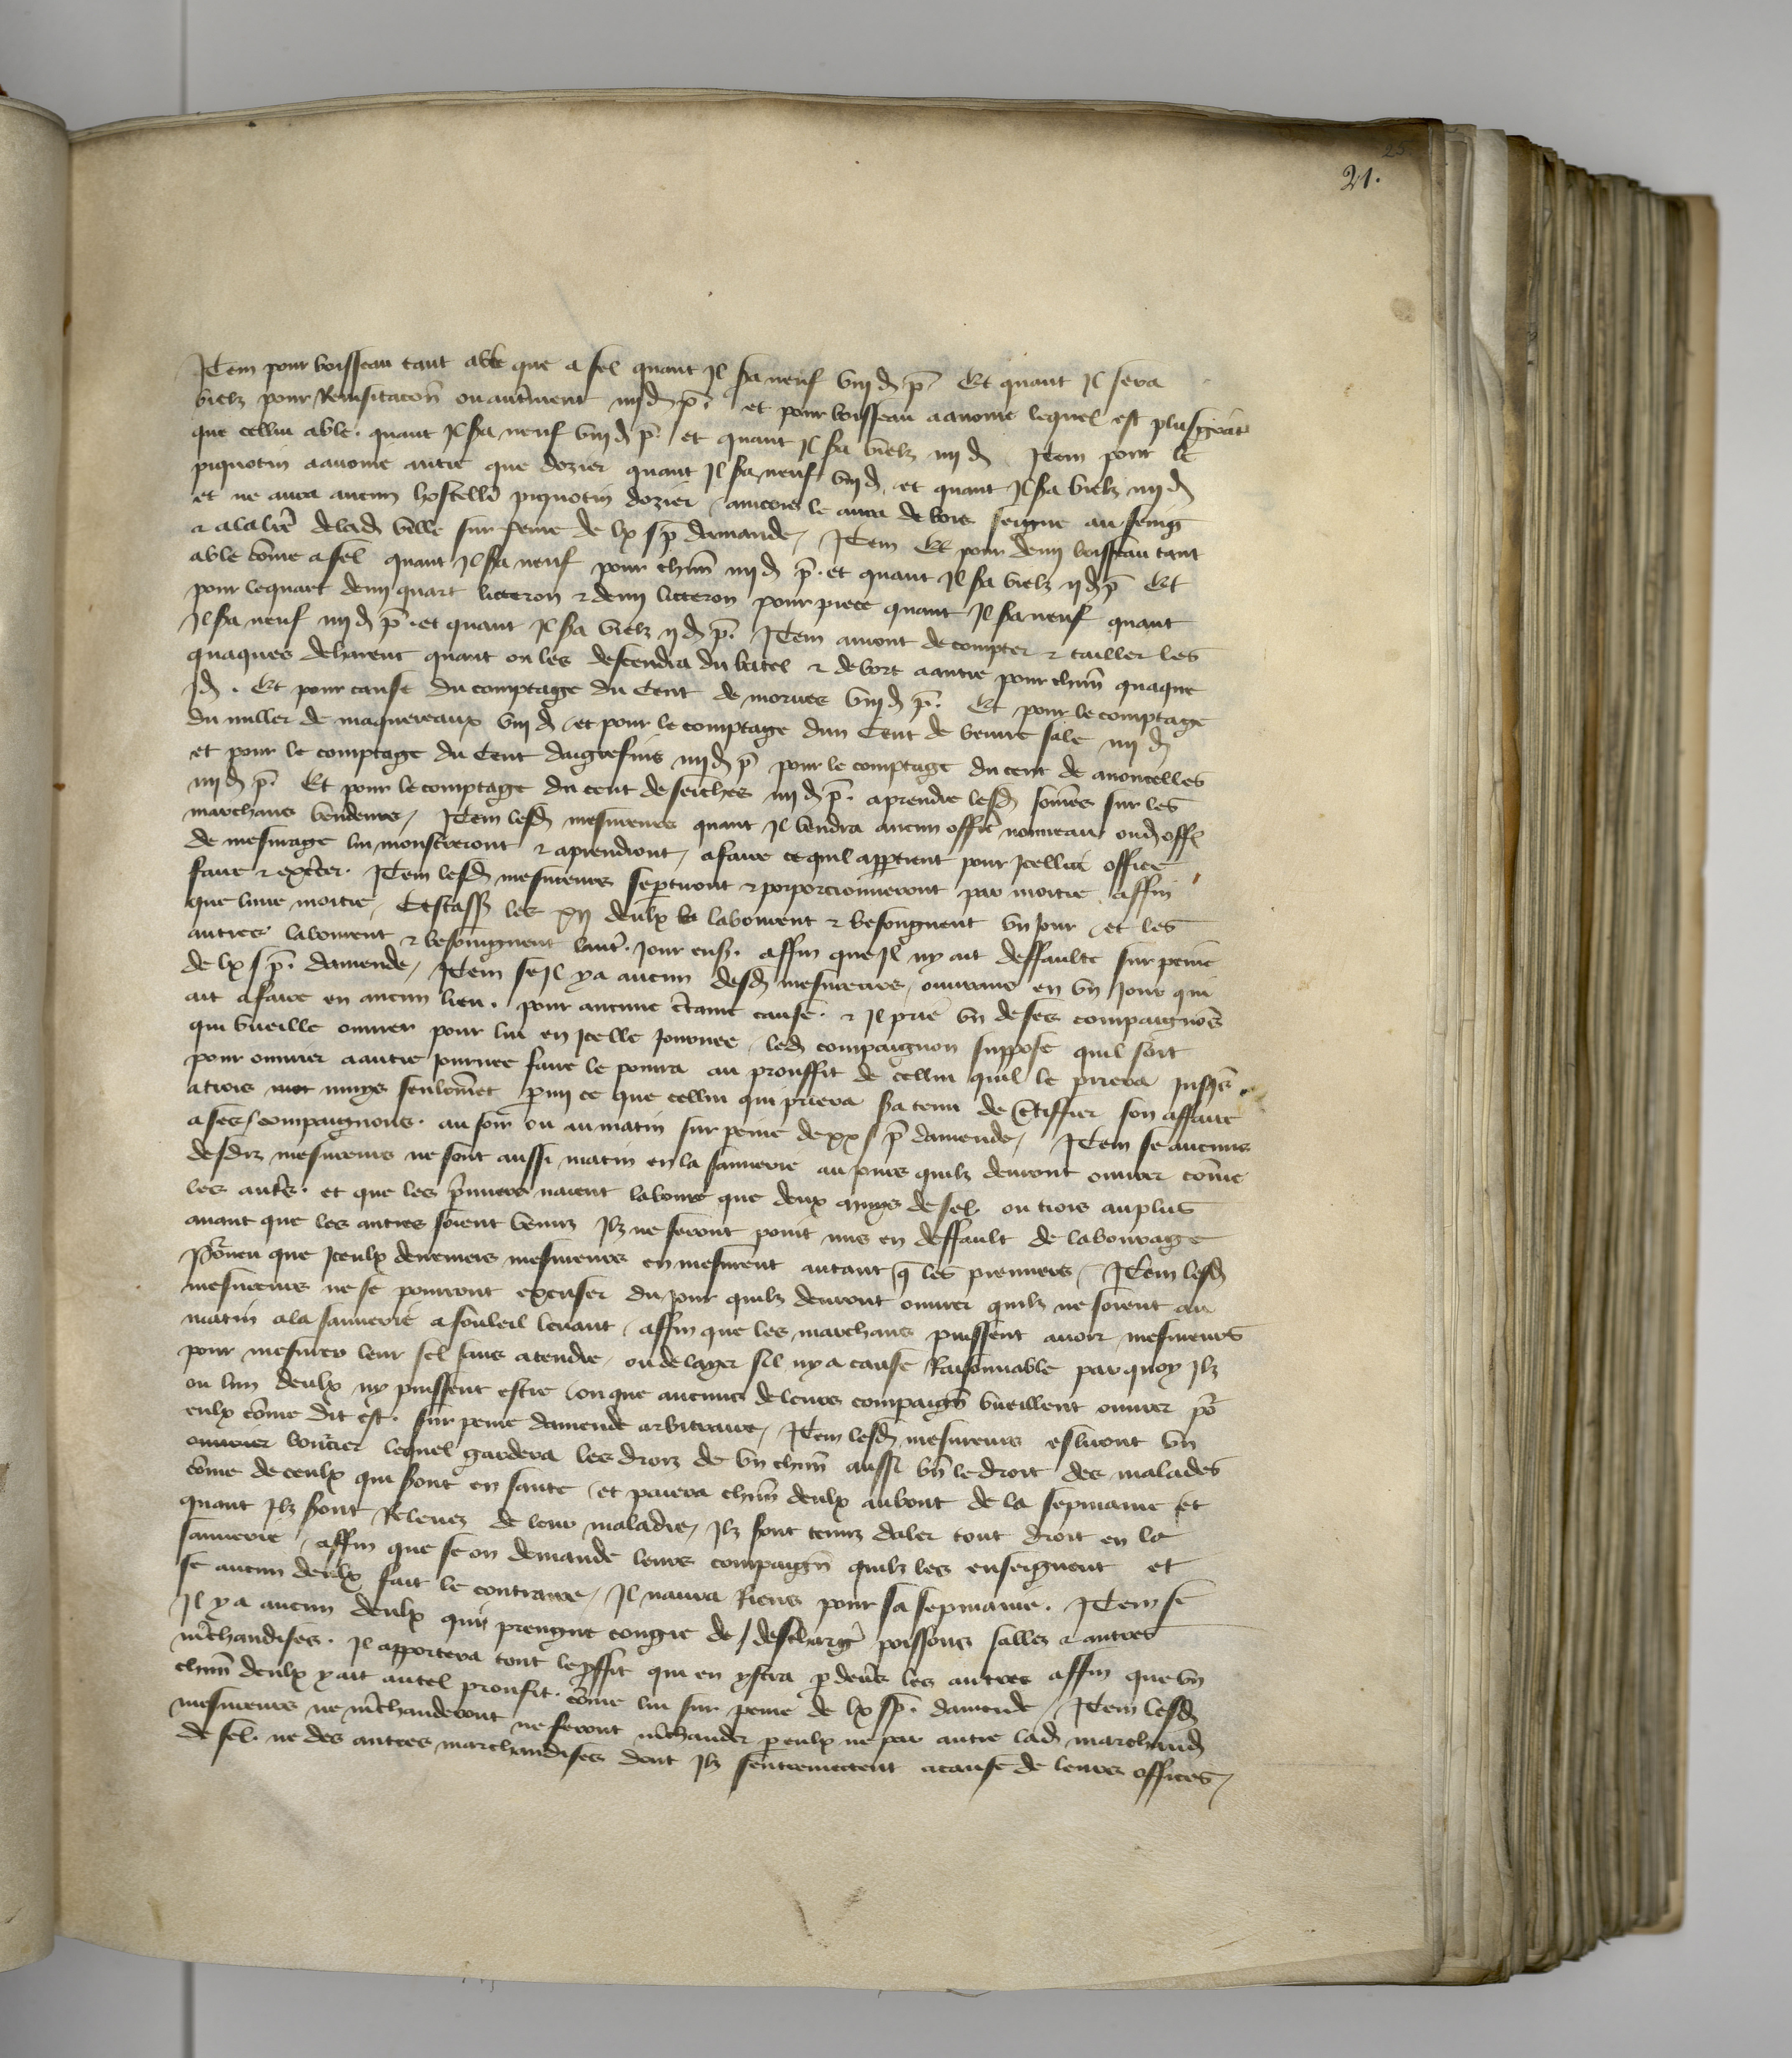 25
21.
Item pour boisseau tant a ble que a sel quant Il sa neuf viij d p Et quant Il sera
vielz pour Revisitacon ou autrement iiij d p. et pour boisseau a avoine lequel est plus grat
que cellui a ble. quant Il sa neuf viij d p. et quant Il sa vielz iiij d Item pour le
piquotin a avoine autre que dozier quant Il sa neuf viij d, et quant Il sa vielz iiij d
et ne aura aucun hostelle piquotin dozier / aincois le aura de bois seigne au seing
& a la lre de lad ville sur peine de lx s p damande / Item Et pour demy boisseau tant
a ble come a sel quant Il sa neuf pour chun iiij d p. et quant Il sa vielz ij d p Et
pour le quart demy quart litteron & demy litteron pour piece quant Il sa neuf quant
Il sa neuf iiij d p. et quant Il sa vielz ij d p. Item auront de compter & tailler les
quaques de harenc quant on les descendra du batel & de bort a autre pour chun quaque
j d. Et pour cause du comptage du Cent de morues viij d p. Et pour le comptage
du miller de maquereaux viij d / et pour le comptage dun Cent de venure sale iiij d
et pour le comptage du Cent daigrefins iiij d p pour le comptage du cent de anoncelles
iiij d p. Et pour le comptage du cent de seiches iiij d p. a prendre lesd somes sur les
marchans vendeurs / Item lesd mesureurs quant Il vendra aucun offic nouveau oud off
de mesurage lui monstreront & aprendront / a faire ce quil appartient pour Icellui office
faire & excer. Item lesd mesureurs se ptiront & porporcionneront par moitie affin
que lune moitie / Cestass les xij deulx labourent & besongnent vn Jour / et les
autres labourent & besoingnent laut Jour ens. affin que Il ny ait deffaulte sur peine
de lx s p. damende / Item se Il y a aucun desd mesureurs / ouvrans en vn Jour qui
ait a faire en aucun lieu. pour aucune ctaine cause. & Il prie vn de ses compaignos
qui vueille ouvrer pour lui en Icelle Journee / led compaignon suppose quil soit
pour ouvrier a autre Journee faire le pourra au prouffit de cellui quil le priera Jusqs
a trois muys seulemet pmy ce que cellui qui priera sa tenu de ctiffier son affaire
a ses compaignons. au soir ou au matin sur peine de xx s p damende / Item se aucuns
desdiz mesureurs ne sont aussi matin en la saunerie au Jours quilz devront ouvrer come
les autrs. et que les pmiers naient laboure que deux muys de sel. ou trois au plus
avant que les autres soient venuz Ilz ne seront point mis en deffault de labourage
Pourveu que Iceulx derreniers mesureurs en mesurent autant q les premiers / Item lesd
mesureurs ne se pourront excuser du Jour quilz devront ouvrer quilz ne soient au
matin a la saunerie a souleil levant / affin que les marchans puissent avoir mesureurs
pour mesurer leur sel sans atendre / ou delayer sil ny a cause Raisonnable par quoy Ilz
ou lun deulx ny puissent estre / ou que aucuns de leurs compaign vueillent ouvrer po
eulx come dit est. sur peine damende arbitraire / Item lesd mesureurs esliront vn
ouvrier boursier lequel gardera les drois de vn chun aussi bn le droit des malades
come de ceulx qui sont en sante / et paiera chun deulx au bout de la sepmaine et
quant Ilz sont Relevez de leur maladie / Ilz sont tenuz daler tout droit en la
saunerie / affin que se on demande leurs compaign quilz les enseignent et
se aucun deulx fait le contraire / Il naura Riens pour sa sepmaine. Item se
Il y a aucun deulx qui prengne congie de / deschargr poissons sallez & autres
mchandises. Il apportera tout le pffit qui en ystra p devs les autres affin que vn
chun deulx y ait autel proufit. come lui sur peine de lx s p. damende / Item lesd
mesureurs ne mchanderont ne feront mchander p eulx ne par autre lad marchand
de sel. ne des autres marchandises dont Ilz sentremettent a cause de leurs offices /